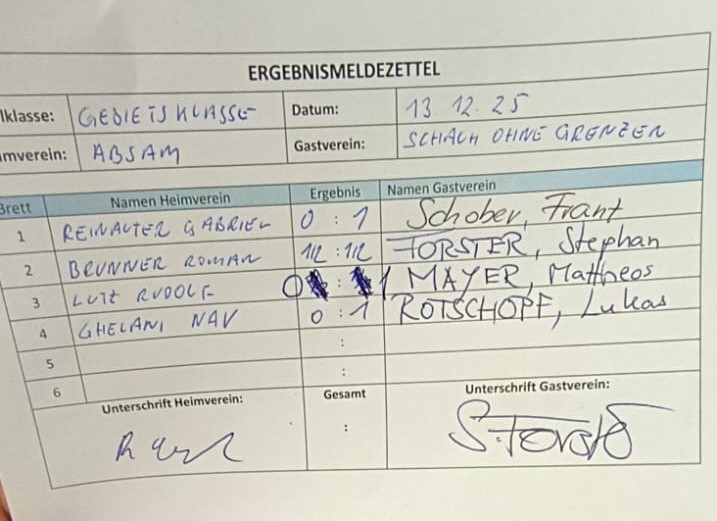 ERGEBNISMELDEZETTEL
lklasse: GEBIETSKLASSE Datum: 13.12.25
mverein: ABSAM Gastverein: SCHACH OHNE GRENZEN
Brett Namen Heimverein Ergebnis Namen Gastverein
1 REINALTER GABRIEL 0 : 1 Schober, Frant
2 BRUNNER ROMAN 1/2 : 1/2 FORSTER, Stephan
3 LUTZ RUDOLF 0 : 1 MAYER, Mattheos
4 GHELANI NAV 0 : 1 ROTSCHOPF, Lukas
5 :
6 :
Unterschrift Heimverein: Gesamt Unterschrift Gastverein:
: S. Forst